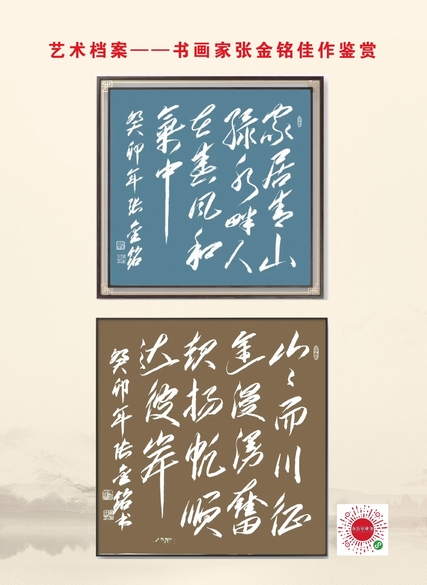 艺术档案——书画家张金铭佳作鉴赏
家居青山
绿水畔人
在春风和
氣中
癸卯年张金铭
山〻而川征
途漫漫奮
楫扬帆顺
达彼岸
癸卯年张金铭书